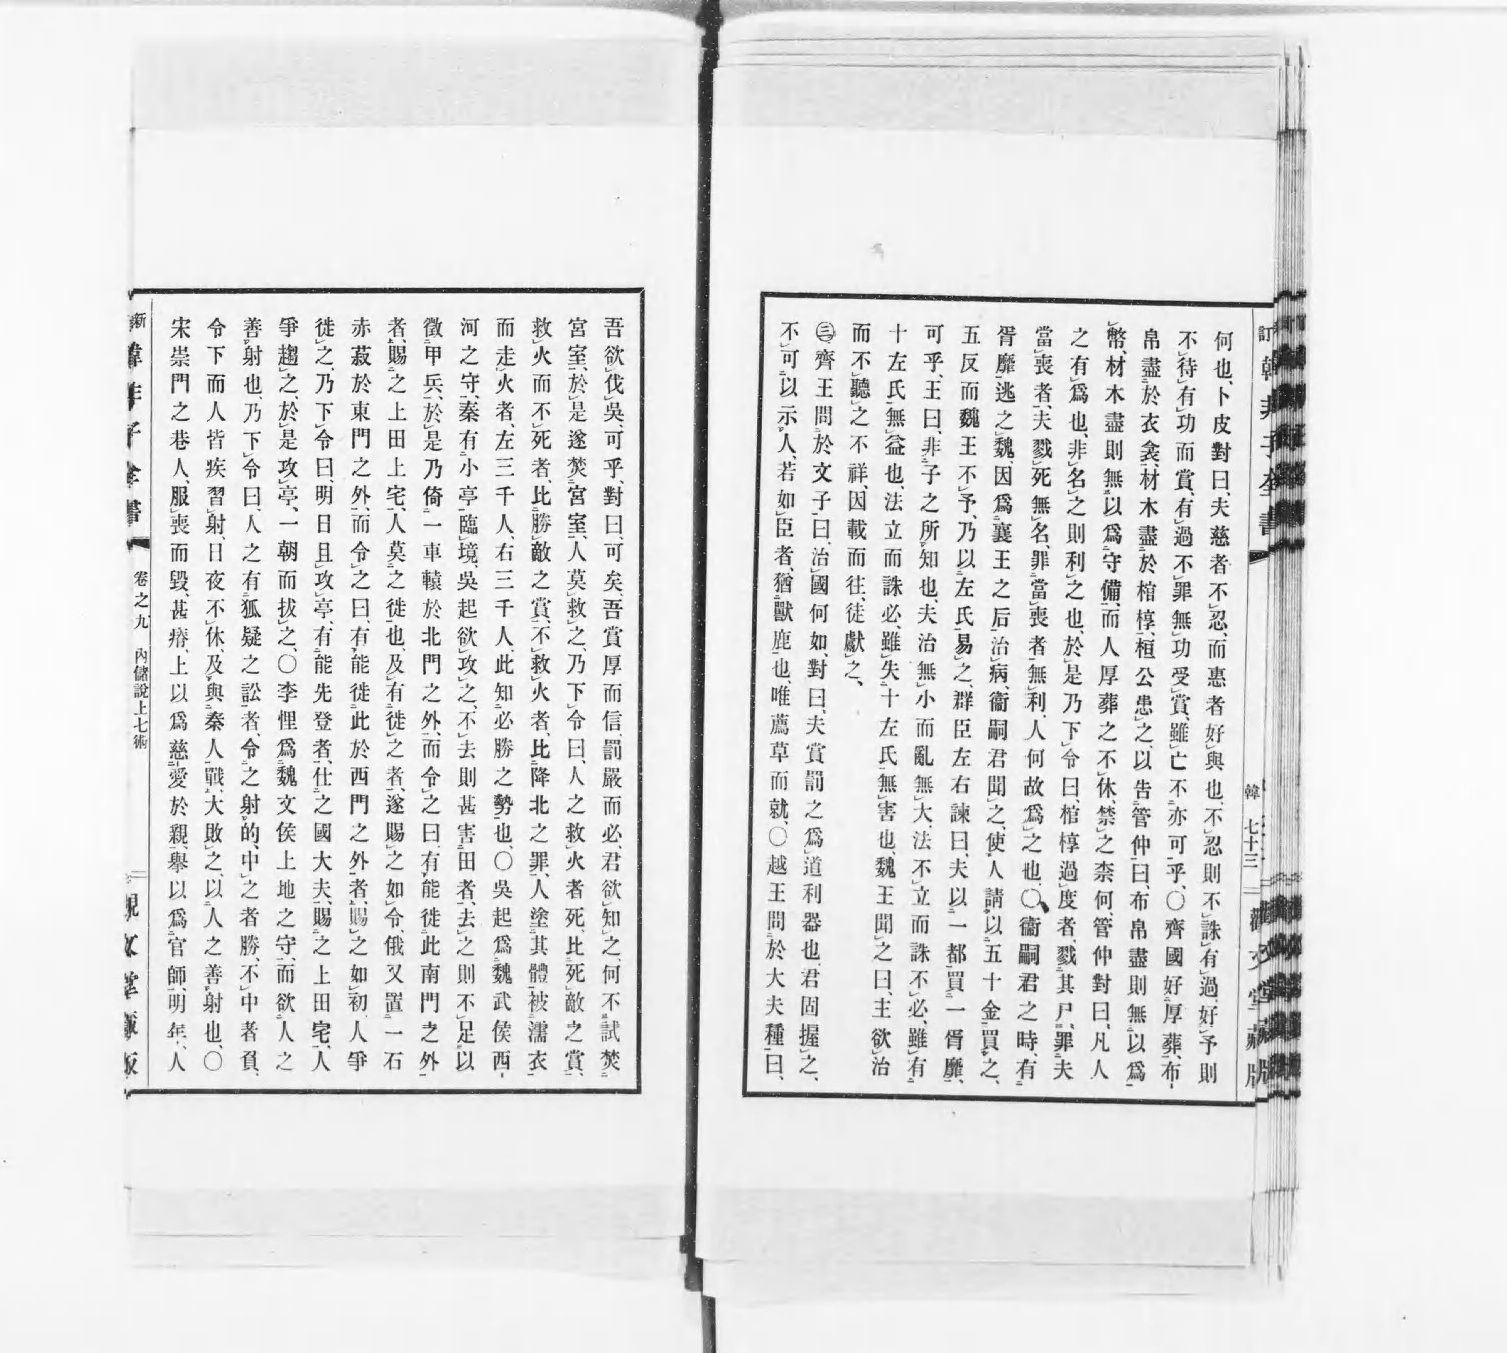 訂 韓非子全書 韓 七十三 觀文堂藏版
何也、卜皮對曰、夫慈者不忍、而惠者好與也、不忍則不誅有過、好予則
不待有功而賞、有過不罪無功受賞、雖亡不亦可乎、〇齊國好厚葬、布
帛盡於衣衾、材木盡於棺椁、桓公患之、以告管仲曰、布帛盡則無以爲
幣、材木盡則無以爲守備、而人厚葬之不休、禁之柰何、管仲對曰、凡人
之有爲也、非名之則利之也、於是乃下令曰、棺椁過度者、戮其尸、罪夫
當喪者、夫戮死無名、罪當喪者無利、人何故爲之也、〇衞嗣君之時、有
胥靡逃之魏、因爲襄王之后治病、衞嗣君聞之、使人請以五十金買之、
五反而魏王不予、乃以左氏易之、群臣左右諫曰、夫以一都買一胥靡、
可乎、王曰、非子之所知也、夫治無小而亂無大、法不立而誅不必、雖有
十左氏無益也、法立而誅必、雖失十左氏無害也、魏王聞之曰、主欲治
而不聽之不祥、因載而往、徒獻之、
㊂齊王問於文子曰、治國何如、對曰、夫賞罰之爲道利器也、君固握之、
不可以示人、若如臣者、猶獸鹿也、唯薦草而就、〇越王問於大夫種曰、
吾欲伐吳、可乎、對曰、可矣、吾賞厚而信、罰嚴而必、君欲知之、何不試焚
宮室、於是遂焚宮室、人莫救之、乃下令曰、人之救火者死、比死敵之賞、
救火而不死者、比勝敵之賞、不救火者、比降北之罪、人塗其體被濡衣
而走火者、左三千人、右三千人、此知必勝之勢也、〇吳起爲魏武侯西
河之守、秦有小亭臨境、吳起欲攻之、不去則甚害田者、去之則不足以
徵甲兵、於是乃倚一車轅於北門之外、而令之曰、有能徙此南門之外
者、賜之上田上宅、人莫之徙也、及有徙之者、遂賜之如令、俄又置一石
赤菽於東門之外、而令之曰、有能徙此於西門之外者、賜之如初、人爭
徙之、乃下令曰、明日且攻亭、有能先登者、仕之國大夫、賜之上田宅、人
爭趨之、於是攻亭、一朝而拔之、〇李悝爲魏文侯上地之守、而欲人之
善射也、乃下令曰、人之有狐疑之訟者、令之射的、中之者勝、不中者負、
令下而人皆疾習射、日夜不休、及與秦人戰、大敗之、以人之善射也、〇
宋崇門之巷人、服喪而毀、甚瘠、上以爲慈愛於親、舉以爲官師、明年、人
新 韓非子全書 卷之九 內儲說上七術 觀文堂藏版